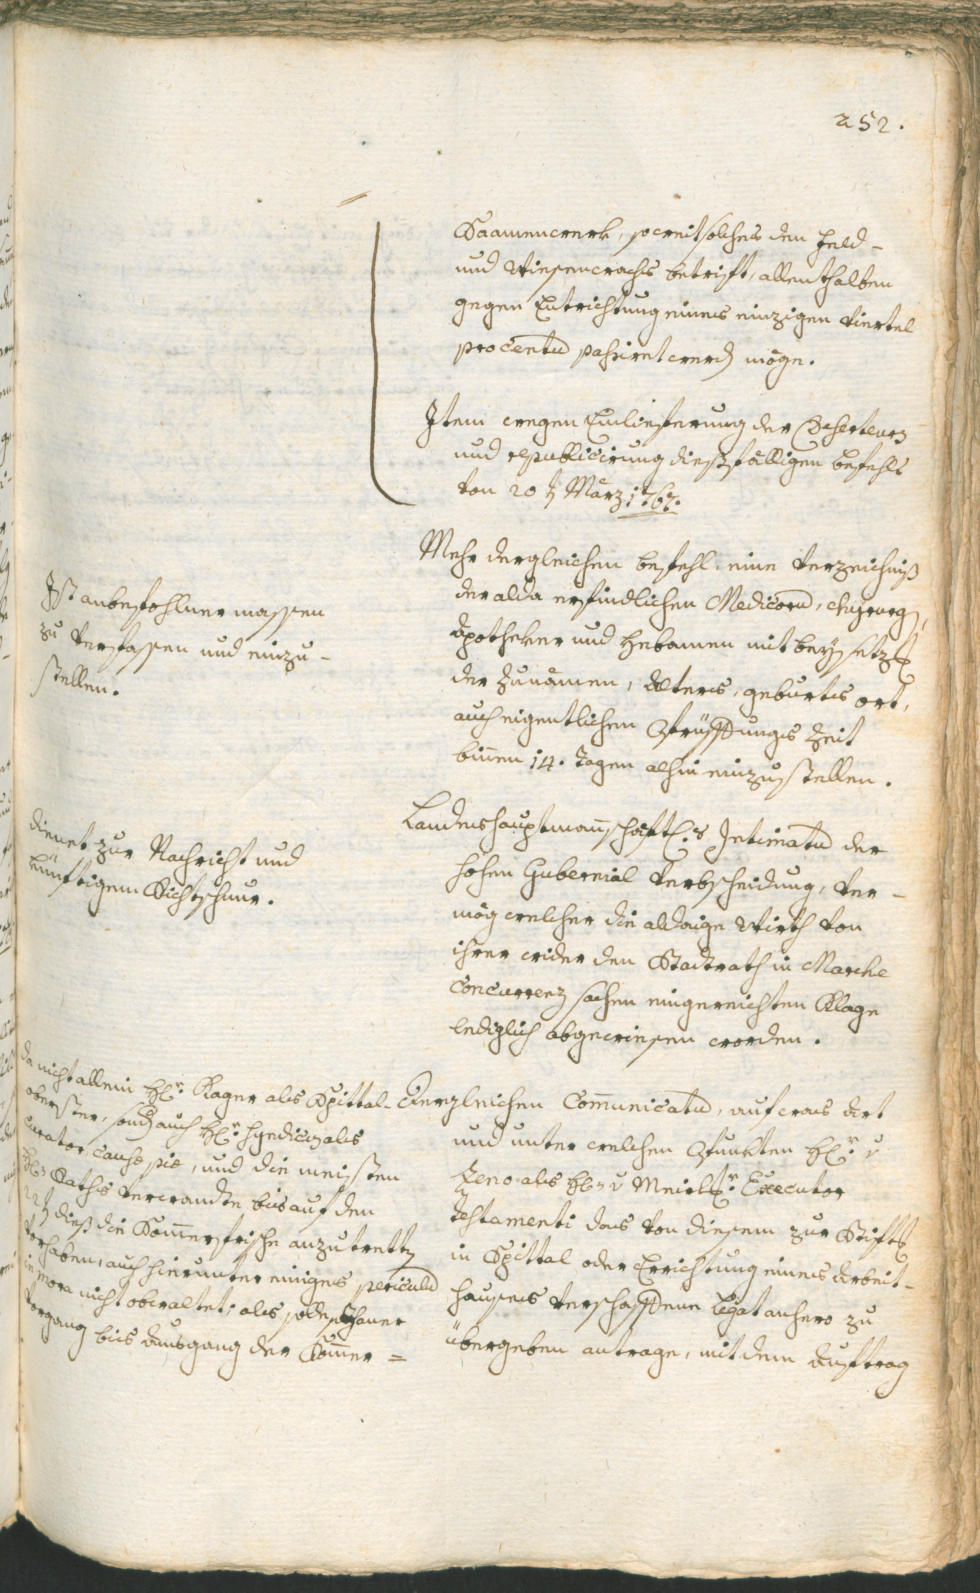 252.
Saamenwerk, soweit solches den Feld-
und Wiesenwachs betrifft, allenthalben
gegen Entrichtung eines einzigen viertel
procentu passiret werden möge.
Item wegen Einlieferung der Deserteurs
und republicirung dießfälligen befehls
von 20t März 1767.
Mehr dergleichen befehl, eine Verzeichniß
der alda erfindlichen Medicorum, chyrurgi,
Apotheker und Hebamen mit beysetzung
der Zunamen, Alters, geburts ort,
auch eigentlichen Prüffungs Zeit
binnen 14. Tagen alhin einzustellen.
Ist anbefohlner massen
zu verfassen und einzu-
stellen.
Landeshauptmannschaftl.s Intimatum der
hohen Gubernial Verbscheidung, ver-
mög welcher die aldaige Wirth von
ihrer wider den Stadtrath in Marche
Concurrenz sachen eingereichten Klage
lediglich abgewiesen worden.
dienet zur Nachricht und
künftigem Richtschnur.
Dergleichen Communicatum, auf was Art
und unter welchen Punkten Hl.r v
Zeno als Hl. v Executor
Testamenti das von diesem zur Stiftung
in Spittal oder Errichtung eines Arbeit-
hauses verschaffene Legat anhero zu
übergeben antrage, mit dem Auftrag
da nicht allein Hl.r Kager als Spittal-
obrister, sond auch Hl.r Syndicus als
Curator causae piae, und die meisten
Hl. Raths Verwandte bis auf den
22t dieß die Sommerfrische anzutretten
vorhaben, auch hierunter einiges periculum
in mora nicht obwaltet; als solle
Vorgang bis Ausgang der Sommer=